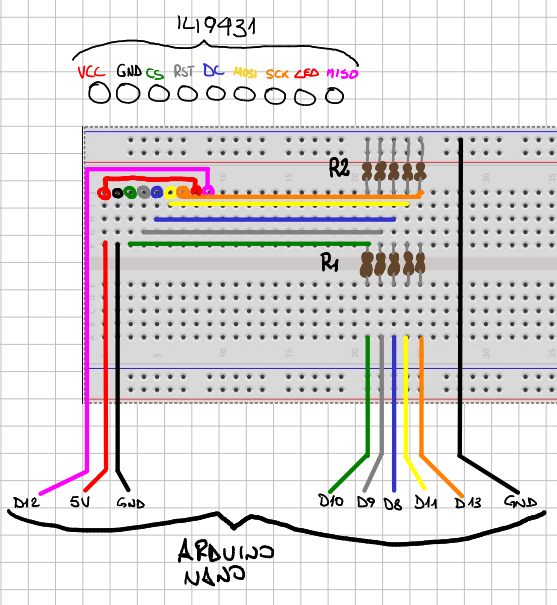 ILI9431
VCC GND CS RST DC MOSI SCK LED MISO
R2
R1
5 10 15 20 30 35
D12 5V GND D10 D9 D8 D11 D13 GND
ARDUINO
NANO